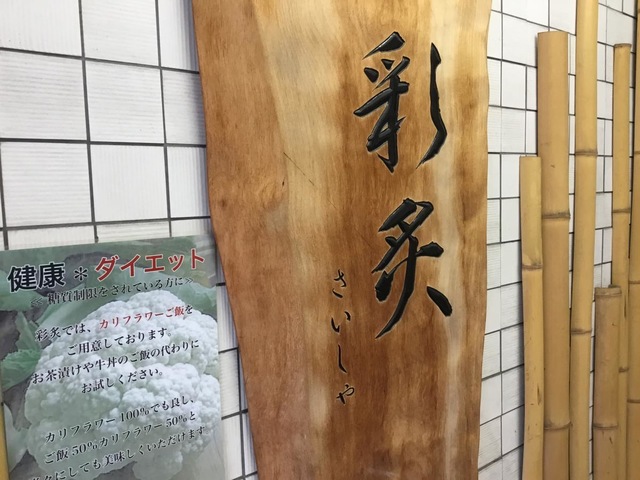 彩炙
さいしゃ
健康＊ダイエット
≪糖質制限をされている方に≫
彩炙では、カリフラワーご飯を
ご用意しております。
お茶漬けや牛丼のご飯の代わりに
お試しください。
カリフラワー100%でも良し、
ご飯50%カリフラワー50%と
にしても美味しくいただけます